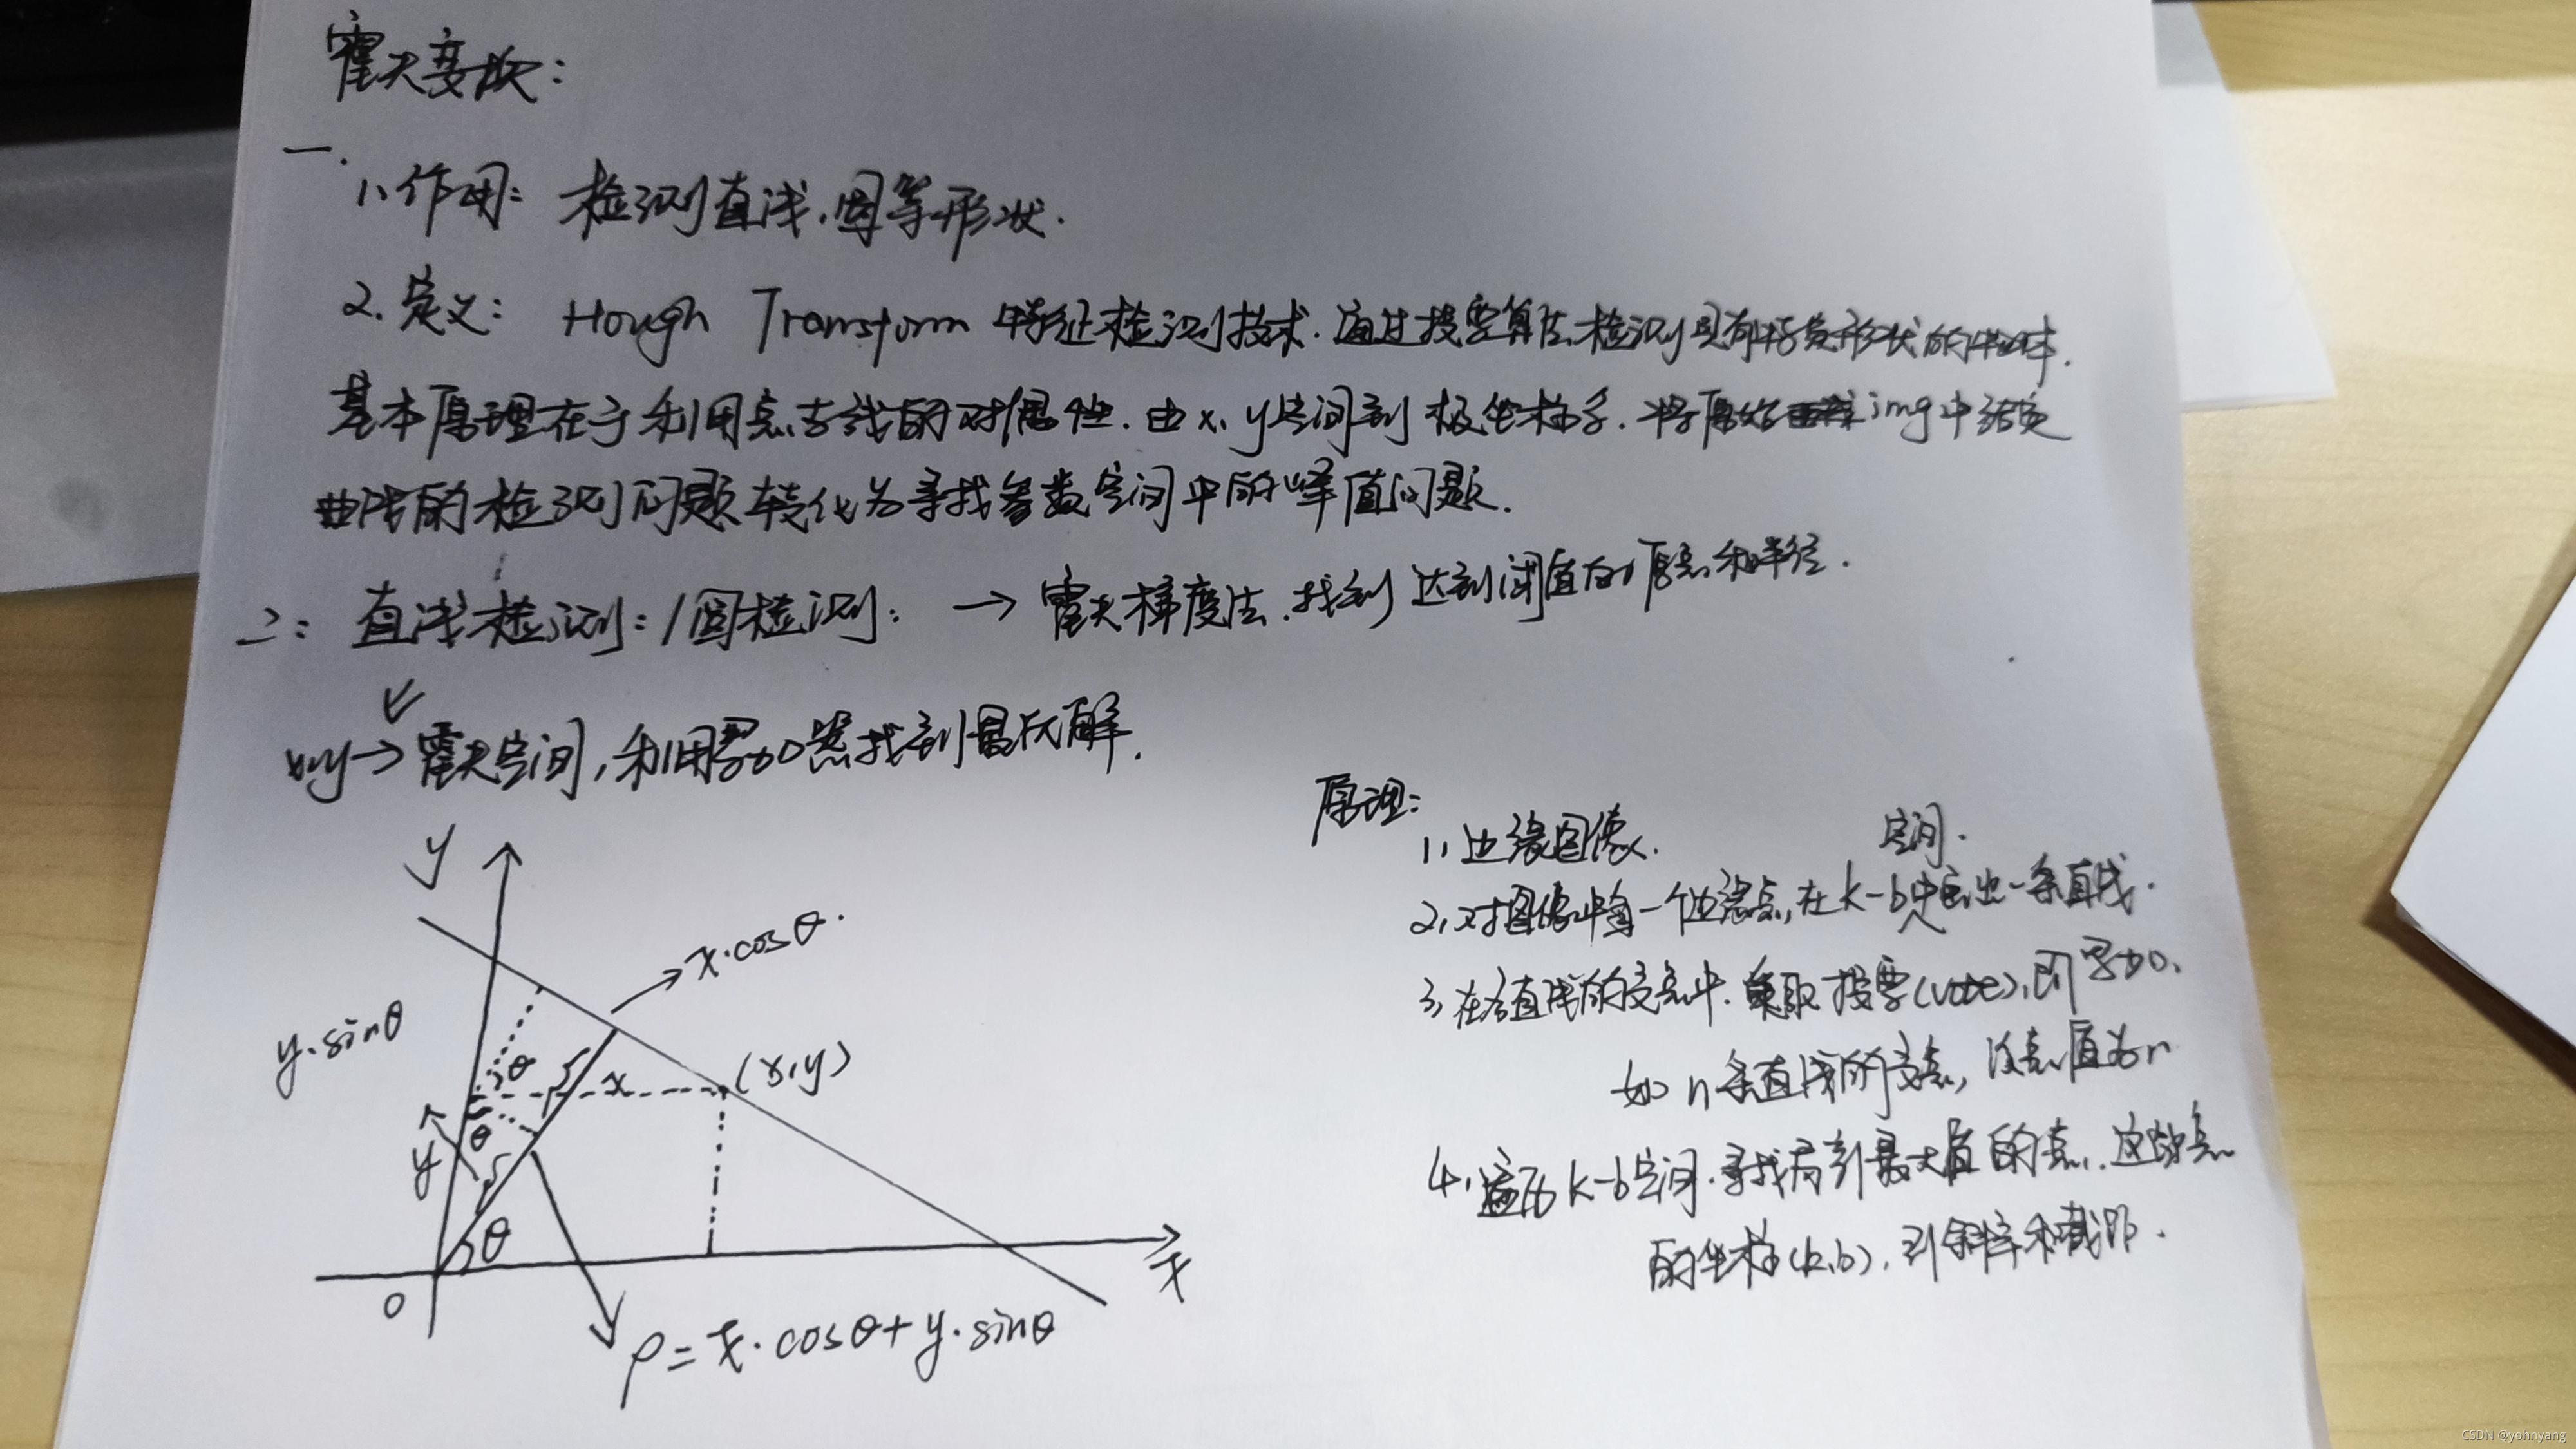 霍夫变换:
一.
1、作用: 检测直线、圆等形状.
2. 定义: Hough Transform 特征检测技术. 通过投票算法检测具有特定形状的物体.
基本原理在于利用点与线的对偶性. 由 x、y空间到 极坐标系. 将原始 img中给定
曲线的检测问题转化为寻找参数空间中的峰值问题.
二: 直线检测: / 圆检测: → 霍夫梯度法. 找到 达到阈值的 和半径.
x,y → 霍夫空间, 利用累加器找到最优解.
原理:
1、边缘图像.
空间.
2、对图像中每一个边缘点, 在 k-b中画出一条直线.
3、在各直线的交点中. 采取投票(vote), 即累加.
如 n条直线的交点, 该点值为n
4、遍历 k-b空间. 寻找局部最大值的点. 这些点
的坐标(k,b), 即斜率和截距.
y
x·cosθ.
y·sinθ
θ
x
(x,y)
θ
y
θ
O
x
ρ = x·cosθ + y·sinθ
CSDN @yohnyang